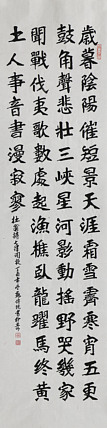 歲暮陰陽催短景天涯霜雪霽寒宵五更
鼓角聲悲壯三峽星河影動搖野哭幾家
聞戰伐夷歌數處起漁樵臥龍躍馬終黃
土人事音書漫寂寥